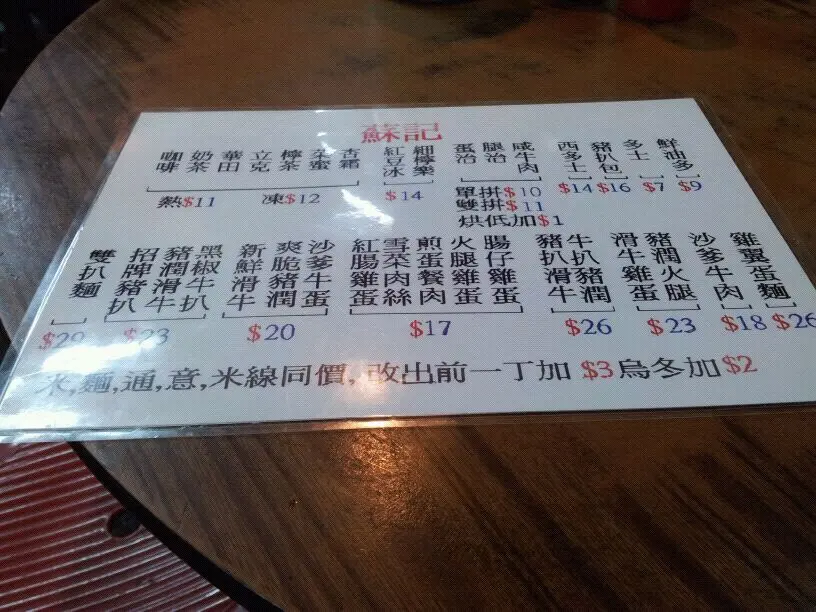 蘇記
咖啡
奶茶
華田
立克
檸茶
蜜
杏霜
熱$11 凍$12
紅豆冰
細檸樂
$14
蛋治
腿治
咸牛肉
單拼$10
雙拼$11
烘低加$1
西多士
$14
豬扒包
$16
多士
$7
鮮油多
$9
雙扒麵
$29
招牌豬扒
豬潤滑牛
黑椒牛扒
$23
新鮮滑牛
爽脆豬潤
沙爹牛蛋
$20
紅腸雞蛋
雪菜肉絲
煎蛋餐肉
火腿雞蛋
腸仔雞蛋
$17
豬扒滑牛
牛扒豬潤
$26
滑牛雞蛋
豬潤火腿
$23
沙爹牛肉
$18
雞翼蛋麵
$26
米,麵,通,意,米線同價,改出前一丁加 $3 烏冬加$2